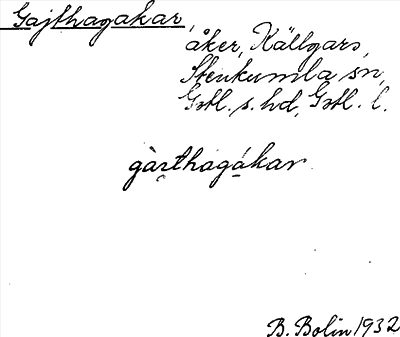 Gajthagakar,
åker, Källgars,
Stenkumla sn,
Gotl. s. hd, Gotl. l.
gàrthagákar
B. Bolin 1932